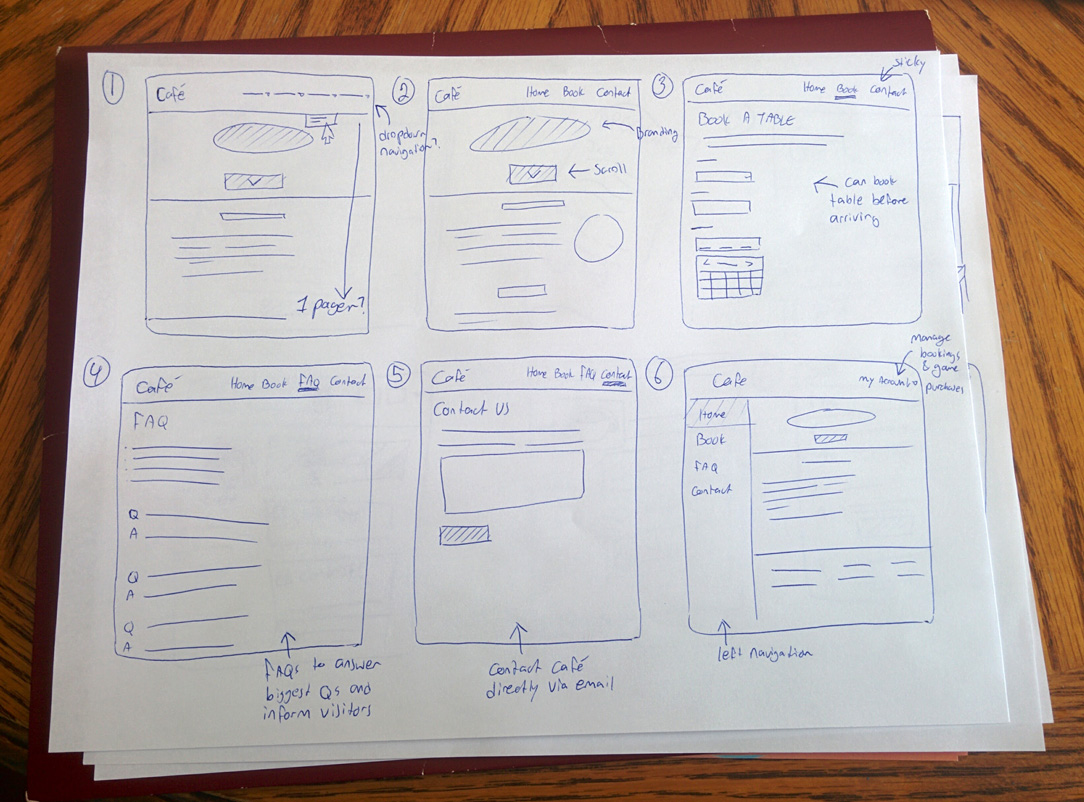 1
Café
dropdown
navigation?
1 pager?
2
Café
Home Book Contact
Branding
Scroll
3
sticky
Café
Home Book Contact
BOOK A TABLE
Can book
table before
arriving
4
Café
Home Book FAQ Contact
FAQ
Q
A
Q
A
Q
A
FAQs to answer
biggest Qs and
inform visitors
5
Café
Home Book FAQ Contact
Contact US
Contact Café
directly via email
6
manage
bookings
& game
purchases
Cafe
My Account
Home
Book
FAQ
Contact
left navigation